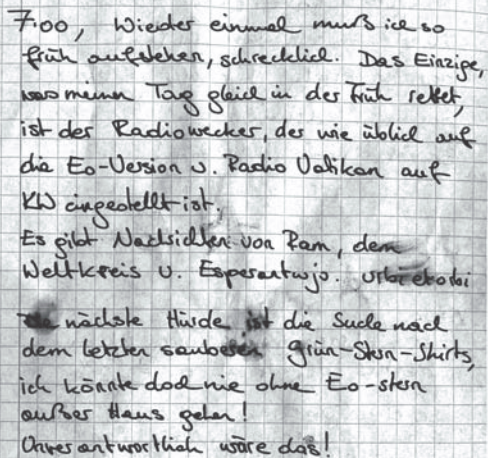 7:00, Wieder einmal muß ich so
früh aufstehen, schrecklich. Das Einzige,
was meinen Tag gleich in der Früh rettet,
ist der Radiowecker, der wie üblich auf
die Eo-Version v. Radio Vatikan auf
KW eingestellt ist.
Es gibt Nachrichten von Rom, dem
Weltkreis u. Esperantujo. urbi et orbi
nächste Hürde ist die Suche nach
dem letzten sauberen Grün-Stern-Shirts,
ich könnte doch nie ohne Eo-stern
außer Haus gehen!
Unverantwortlich wäre das!